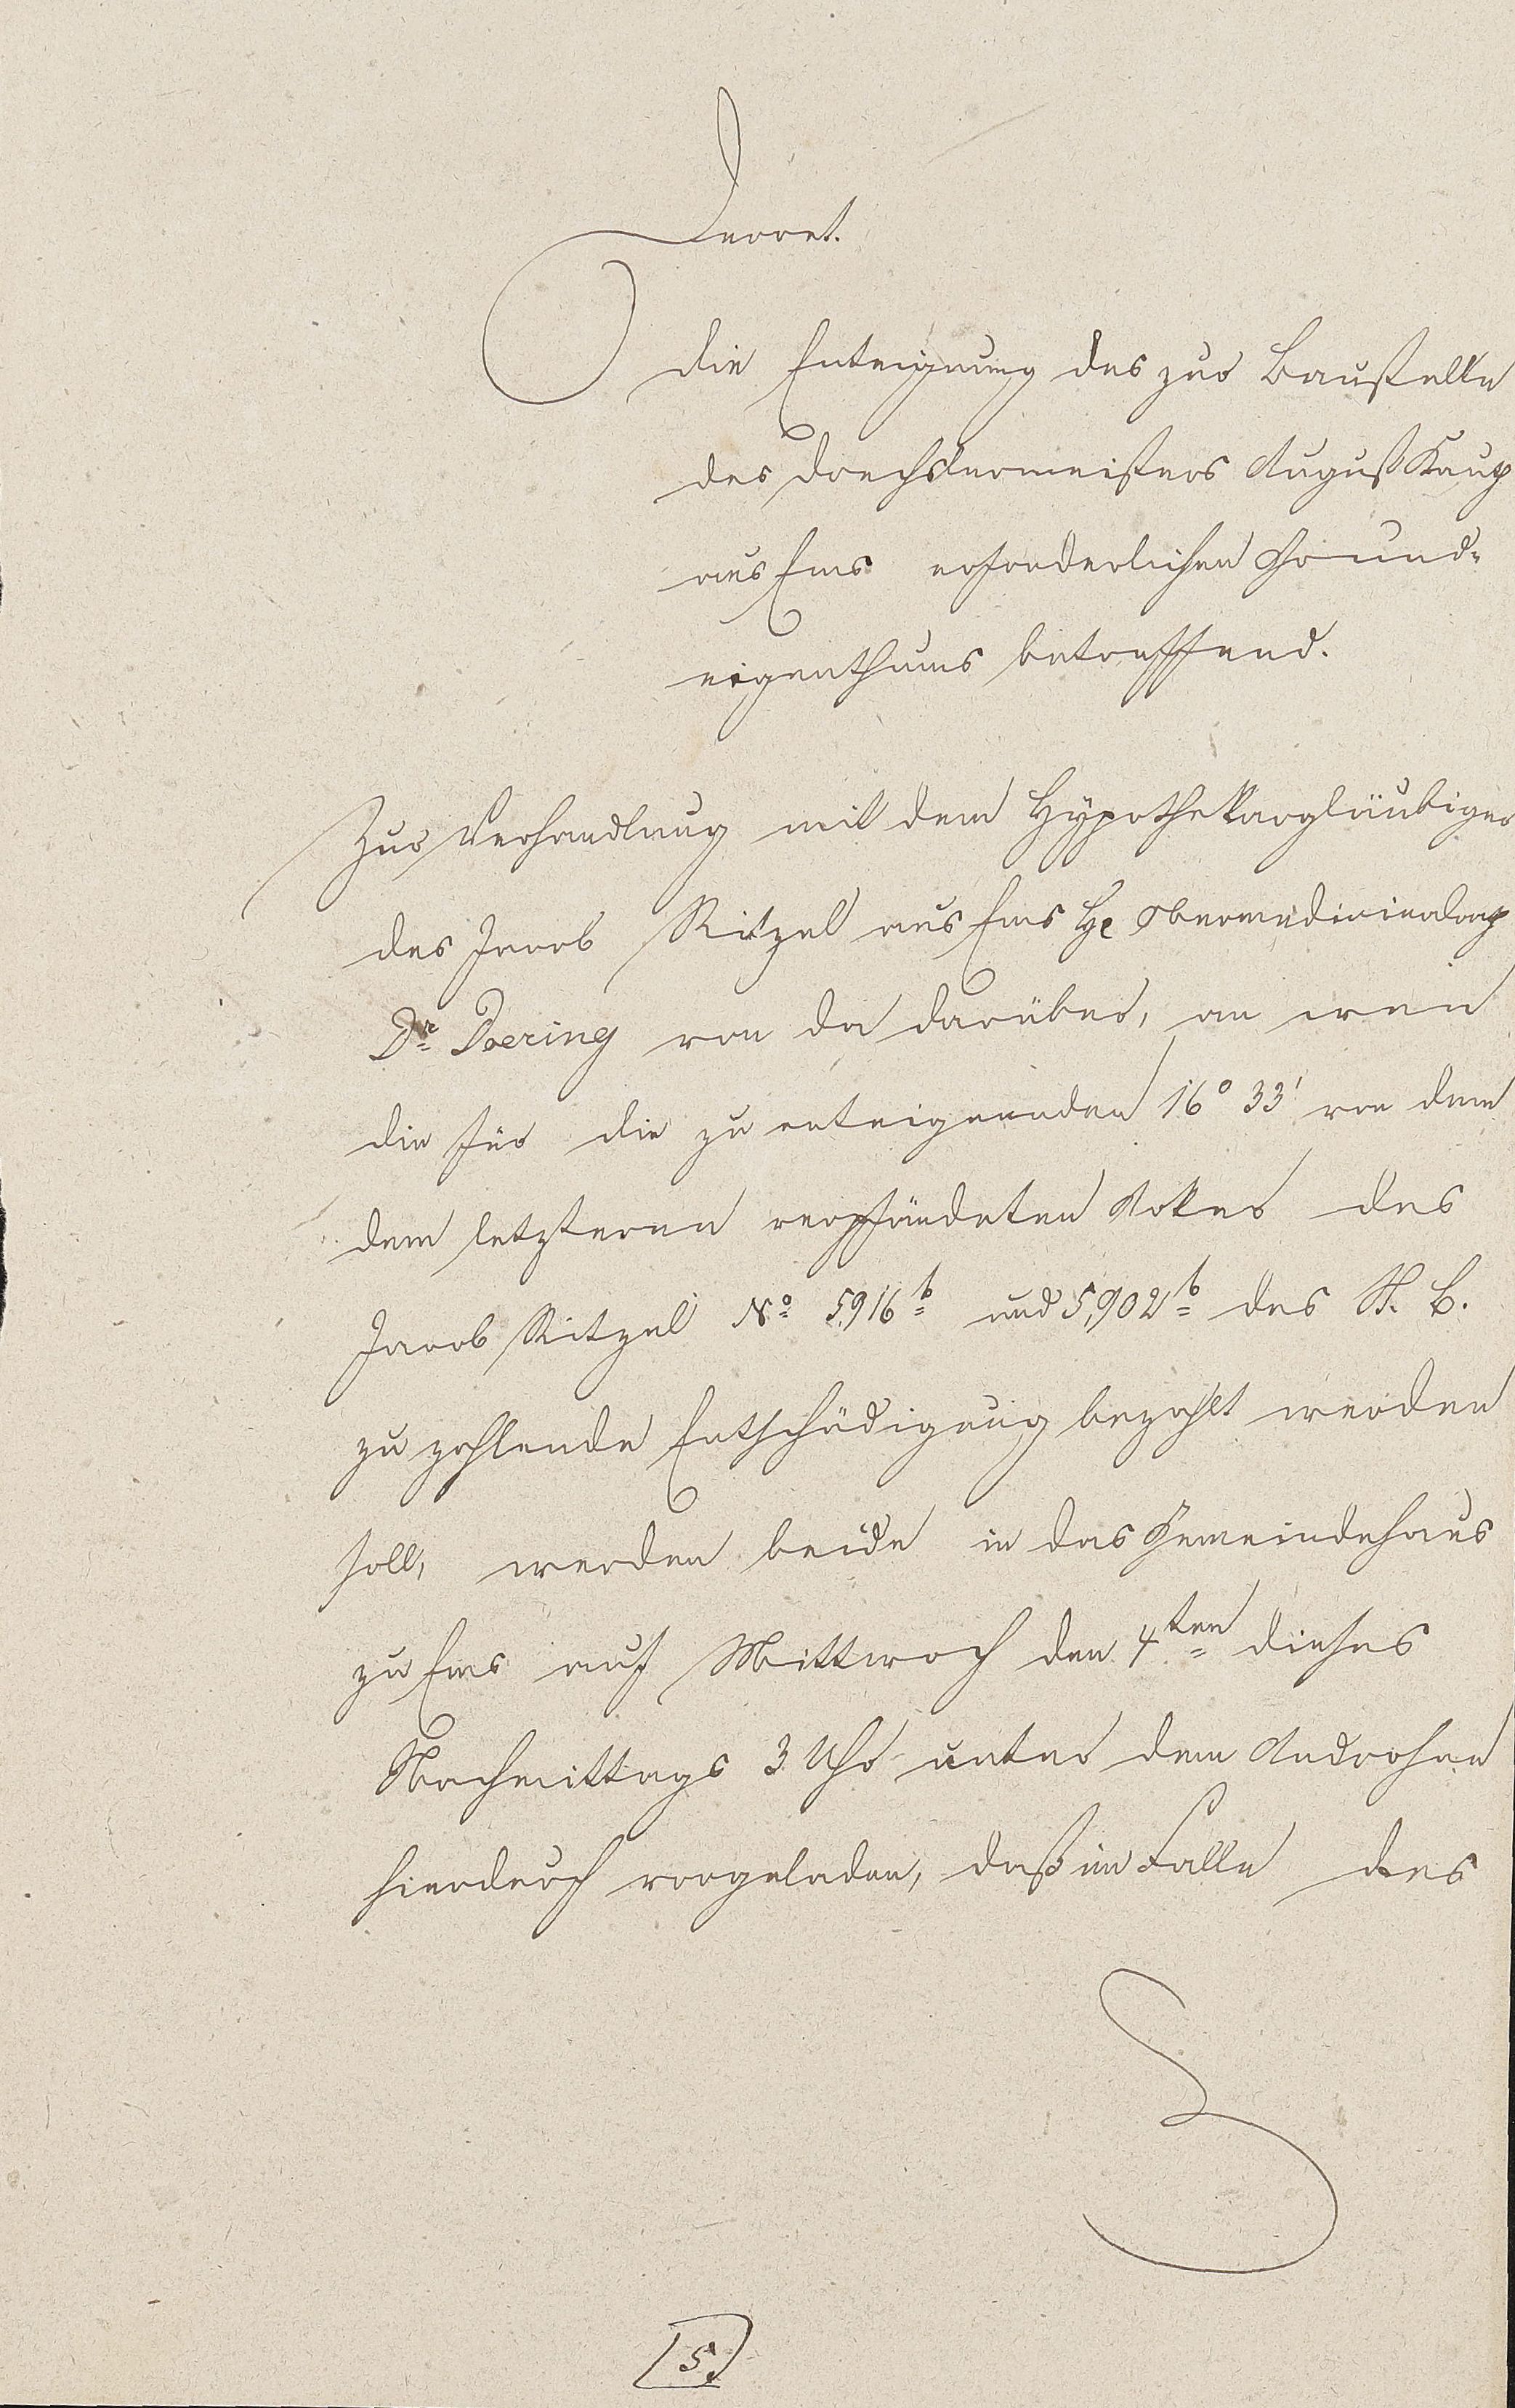 Decret.
die Enteignung des zur Baustelle
des Drechslermeisters August Kauth
aus Ems erforderlichen Grund-
eigenthums betreffend.
Zur Verhandlung mit dem Hypothekargläubiger
des Jacob Ritzel aus Ems Hr Obermedicinalrath
Dr Doering von da darüber, an wen
die für die zu enteignenden 16° 33' von dem
dem letzteren verpfändeten Acker des
Jacob Ritzel No 5916b und 5,902b des St. B.
zu zahlende Entschädigung bezahlt werden
soll, werden beide in das Gemeindehaus
zu Ems auf Mittwoch den 4ten dieses
Nachmittags 3 Uhr unter dem Androhen
hierdurch vorgeladen, daß im Falle des
5.